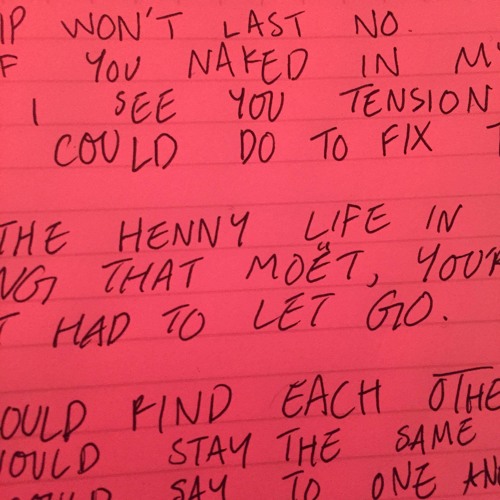 IP WON'T LAST NO.
F YOU NAKED IN M
I SEE YOU TENSION
COULD DO TO FIX T
THE HENNY LIFE IN
NG THAT MOËT, YOUR
T HAD TO LET GO.
OULD FIND EACH OTHE
OULD STAY THE SAME
OULD SAY TO ONE AN